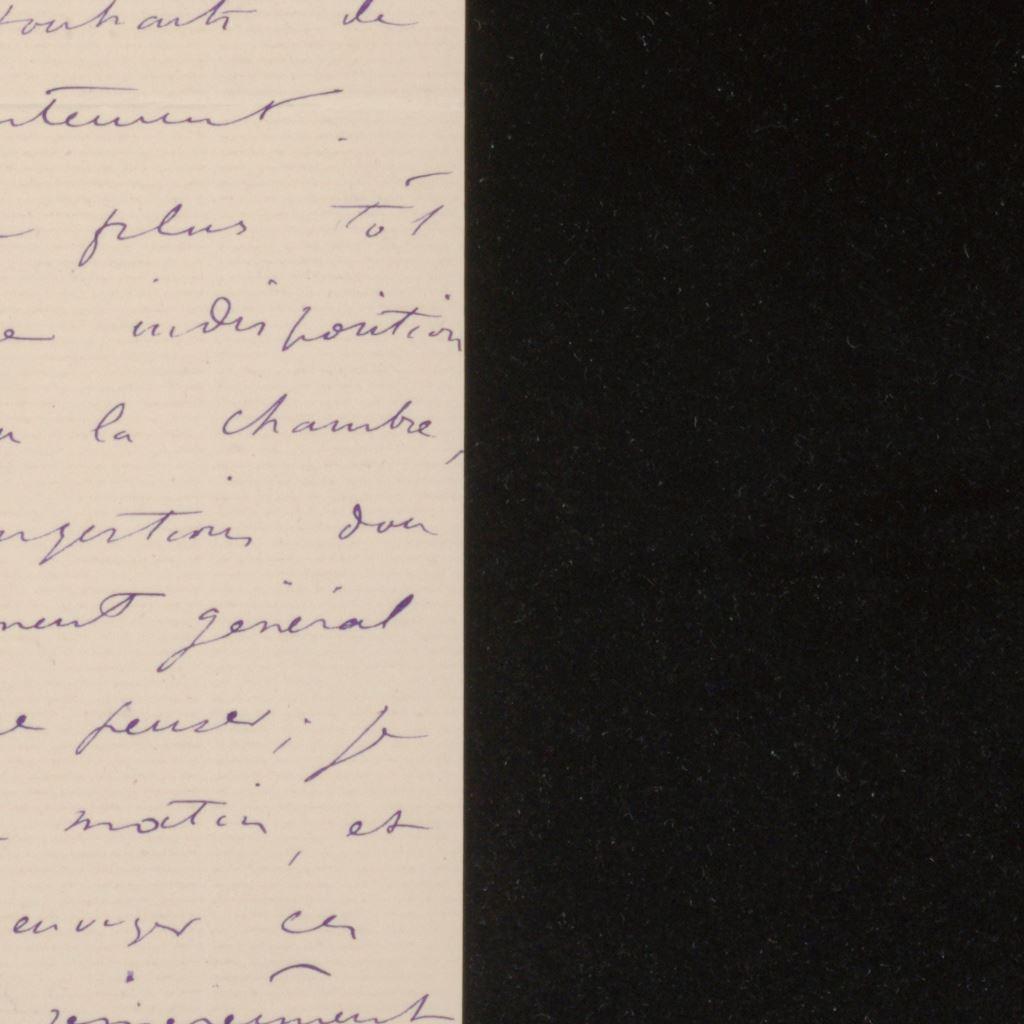 souhaits de
ntement.
plus tôt
e indisposition
la chambre,
ngestions dou
ment général
e penser; je
matin, et
envoyer ces
sincèrement